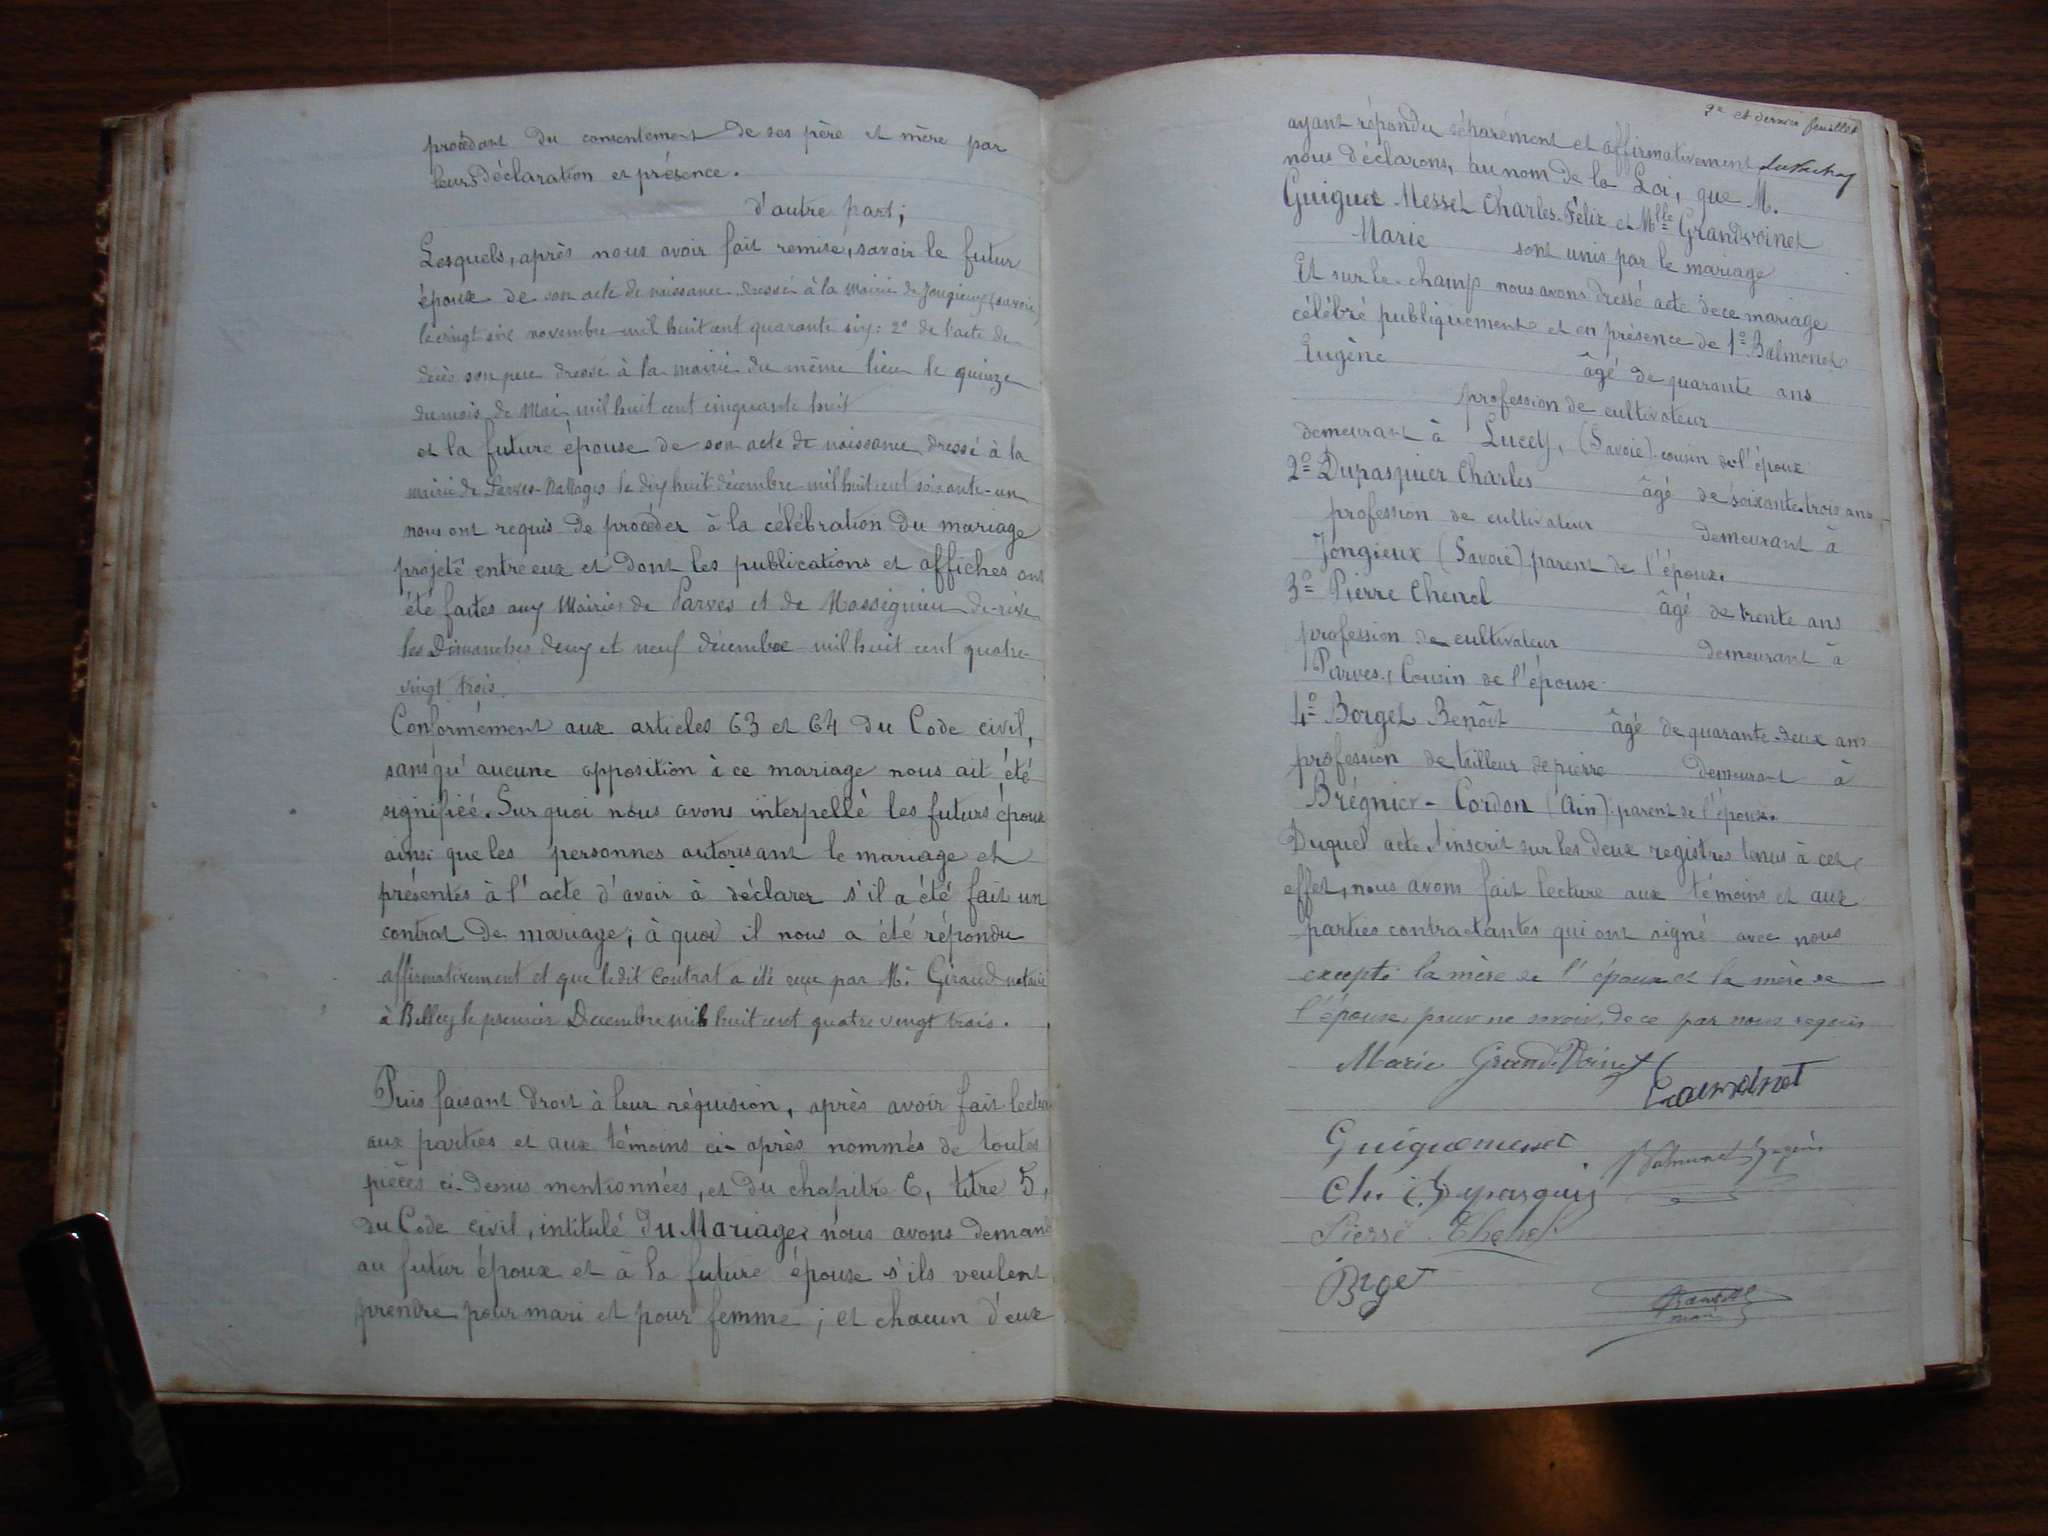 procédant du consentement de ses père et mère par
leurs déclaration et présence.
d'autre part;
Lesquels, après nous avoir fait remise, savoir le futur
époux de son acte de naissance dressé à la mairie de Jongieux (savoie)
le vingt six novembre mil huit cent quarante six: 2° de l'acte de
décès son père dressé à la mairie du même lieu le quinze
du mois de Mai mil huit cent cinquante huit
et la future épouse de son acte de naissance dressé à la
mairie de Parves-Nattages le dix huit décembre mil huit cent soixante-un
nous ont requis de procéder à la célébration du mariage
projeté entre eux et dont les publications et affiches ont
été faites aux Mairies de Parves et de Massignieu de-rive
les Dimanches deux et neuf décembre mil huit cent quatre
vingt trois.
Conformément aux articles 63 et 64 du Code civil,
sans qu'aucune opposition à ce mariage nous ait été
signifiée. Sur quoi nous avons interpellé les futurs époux
ainsi que les personnes autorisant le mariage et
présentes à l'acte d'avoir à déclarer s'il a été fait un
contrat de mariage; à quoi il nous a été répondu
affirmativement et que ledit contrat a été reçu par Me Giraud notaire
à Belley le premier Décembre mil huit cent quatre vingt trois.
Puis faisant droit à leur réquision, après avoir fait lecture
aux parties et aux témoins ci-après nommés de toutes
pièces ci-dessus mentionnées, et du chapitre 6, titre 5,
du Code civil, intitulé du Mariage, nous avons demand
au futur époux et à la future épouse s'ils veulent
prendre pour mari et pour femme; et chacun d'eux
9e et dernier feuillet
ayant répondu séparément et affirmativement
nous déclarons, au nom de la Loi, que M.
Guigue Messet Charles-Félix et Mlle Grandvoinet
Marie sont unis par le mariage
Et sur-le-champ nous avons dressé acte de ce mariage
célébré publiquement et en présence de 1° Balmonet
Eugène âgé de quarante ans
profession de cultivateur
demeurant à Lucey, (Savoie) cousin de l'époux
2° Dupasquier Charles âgé de soixante-trois ans
profession de cultivateur demeurant à
Jongieux (Savoie) parent de l'époux.
3° Pierre Chenel âgé de trente ans
profession de cultivateur demeurant à
Parves, Cousin de l'épouse
4° Borget Benoît âgé de quarante-deux ans
profession de tailleur de pierre demeurant à
Brégnier-Cordon (Ain) parent de l'époux.
Duquel acte, inscrit sur les deux registres tenus à cet
effet, nous avons fait lecture aux témoins et aux
parties contractantes qui ont signé avec nous
excepté la mère de l'époux et la mère de
l'épouse, pour ne savoir, de ce par nous requis
Marie Grand-Voinet
Guiguemesset Balmonet Eugène
Ch. Dupasquier
Pierre Chenel